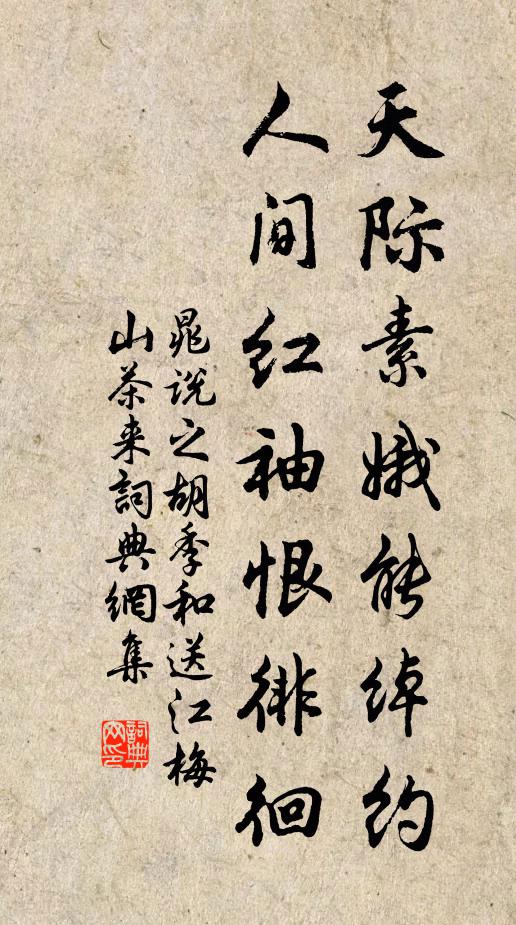 天际素娥能绰约
人间红袖恨徘徊
晁说之胡季和送江梅
山茶来詞典網集
詞典
网印